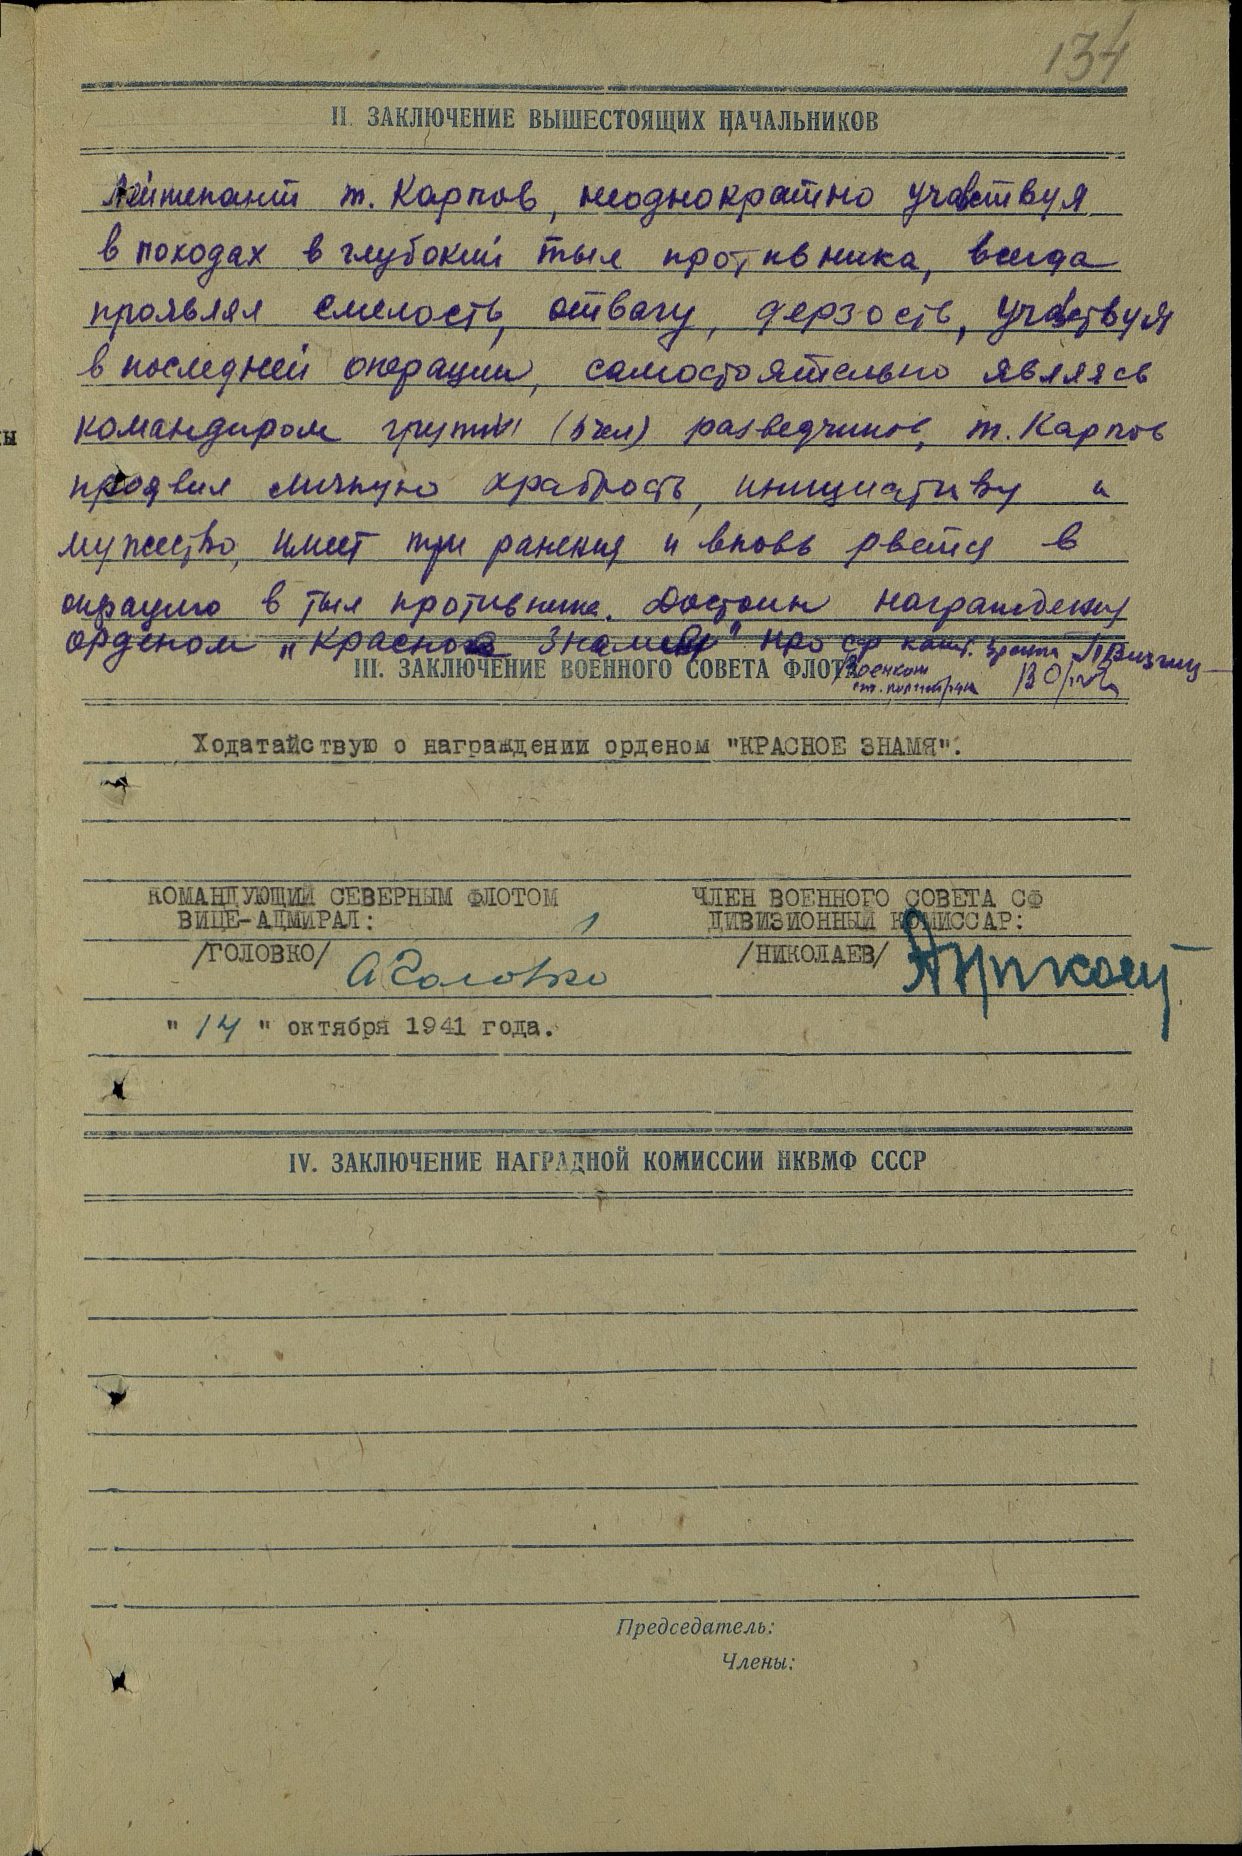 134
II. ЗАКЛЮЧЕНИЕ ВЫШЕСТОЯЩИХ НАЧАЛЬНИКОВ
Лейтенант т. Карпов, неоднократно участвуя
в походах в глубокий тыл противника, всегда
проявлял смелость, отвагу, дерзость, участвуя
в последней операции, самостоятельно являясь
командиром группы (5 чел) разведчиков, т. Карпов
проявил личную храбрость, инициативу и
мужество, имеет три ранения и вновь рвется в
операцию в тыл противника. Достоин награждения
орденом „Красное Знамя" НРО СФ капт. 3 ранга
III. ЗАКЛЮЧЕНИЕ ВОЕННОГО СОВЕТА ФЛОТА
Военком
ст. политрук
Ходатайствую о награждении орденом "КРАСНОЕ ЗНАМЯ".
КОМАНДУЮЩИЙ СЕВЕРНЫМ ФЛОТОМ ЧЛЕН ВОЕННОГО СОВЕТА СФ
ВИЦЕ-АДМИРАЛ: ДИВИЗИОННЫЙ КОМИССАР:
/ГОЛОВКО/ АГоловко /НИКОЛАЕВ/
" 14 " октября 1941 года.
IV. ЗАКЛЮЧЕНИЕ НАГРАДНОЙ КОМИССИИ НКВМФ СССР
Председатель:
Члены:
ы